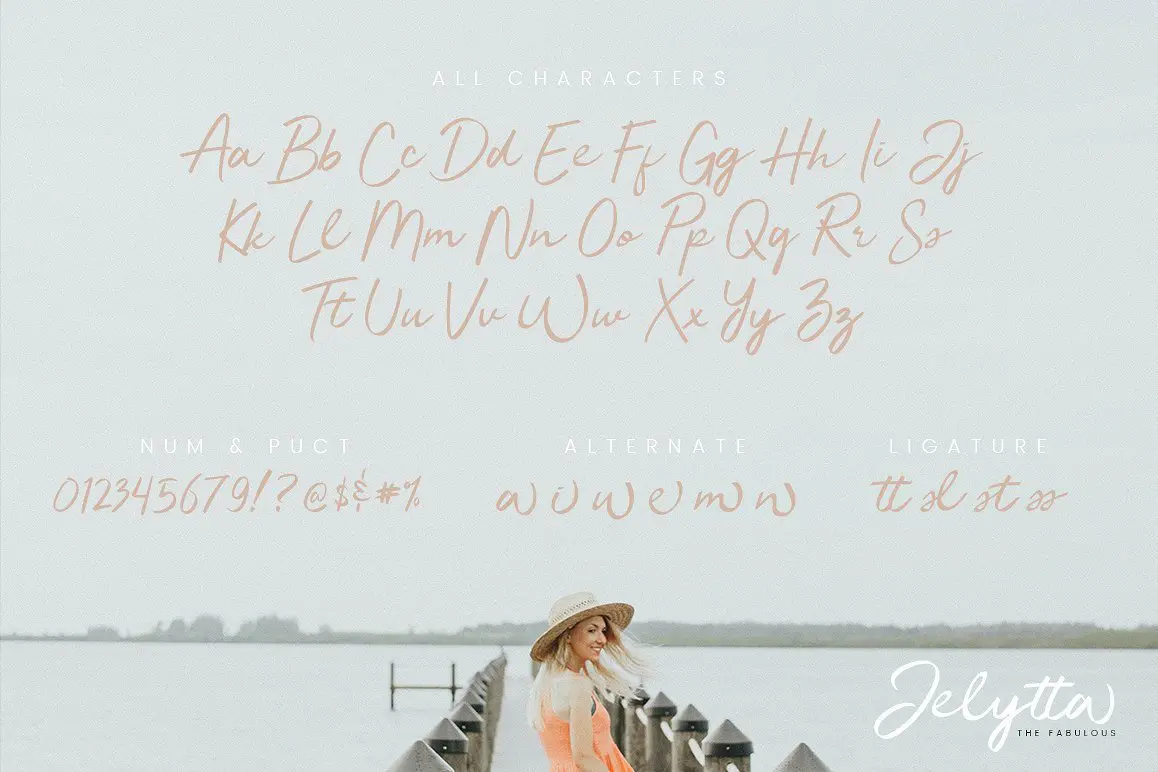 ALL CHARACTERS
Aa Bb Cc Dd Ee Ff Gg Hh Ii Jj
Kk Ll Mm Nn Oo Pp Qq Rr Ss
Tt Uu Vv Ww Xx Yy Zz
NUM & PUCT
0123456789!?@$&#%
ALTERNATE
a i u e m n
LIGATURE
tt sl st ss
Jelytta
THE FABULOUS